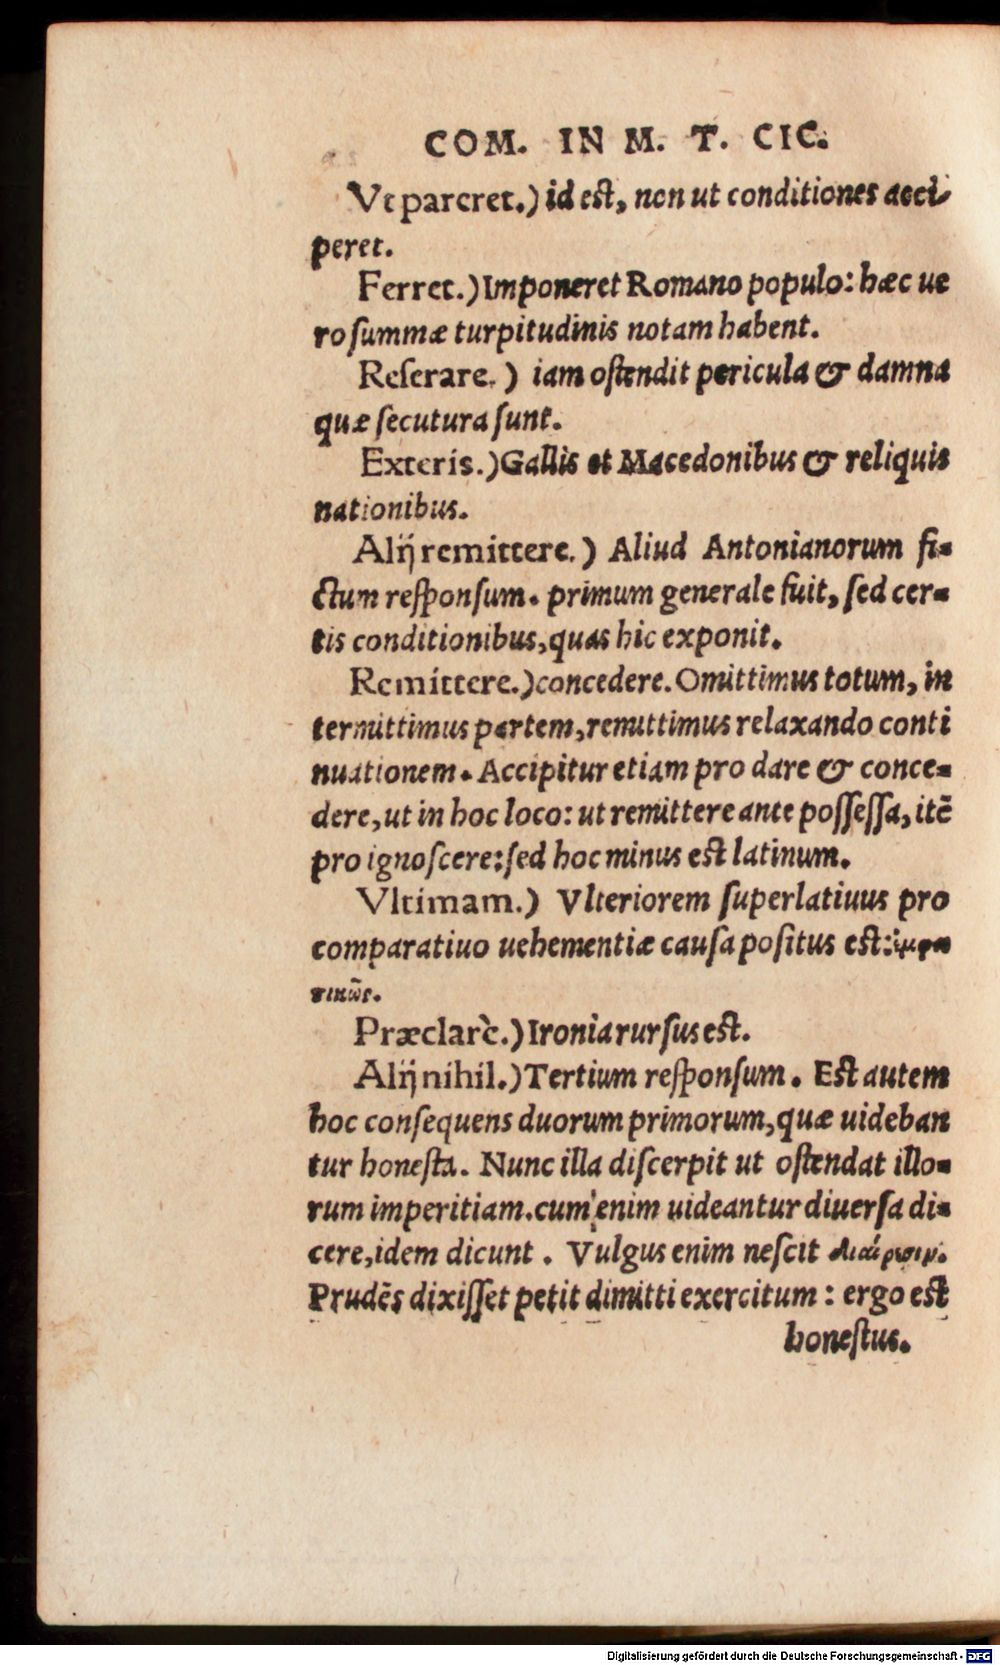 COM. IN M. T. CIC.
Vt pareret.) id est, non ut conditiones acci
peret.
Ferret.) Imponeret Romano populo: hæc ue
ro summæ turpitudinis notam habent.
Reserare.) iam ostendit pericula & damna
quæ secutura sunt.
Exteris.) Gallis et Macedonibus & reliquis
nationibus.
Alij remittere.) Aliud Antonianorum fi-
ctum responsum. primum generale fuit, sed cer-
tis conditionibus, quas hic exponit.
Remittere.) concedere. Omittimus totum, in
termittimus partem, remittimus relaxando conti
nuationem. Accipitur etiam pro dare & conce-
dere, ut in hoc loco: ut remittere ante possessa, itẽ
pro ignoscere: sed hoc minus est latinum.
Vltimam.) Vlteriorem superlatiuus pro
comparatiuo uehementiæ causa positus est:
τικῶς.
Præclarè.) Ironia rursus est.
Alij nihil.) Tertium responsum. Est autem
hoc consequens duorum primorum, quæ uideban
tur honesta. Nunc illa discerpit ut ostendat illo-
rum imperitiam. cum enim uideantur diuersa di-
cere, idem dicunt. Vulgus enim nescit διαίρεσιν.
Prudẽs dixisset petit dimitti exercitum: ergo est
honestus.
Digitalisierung gefördert durch die Deutsche Forschungsgemeinschaft - DFG